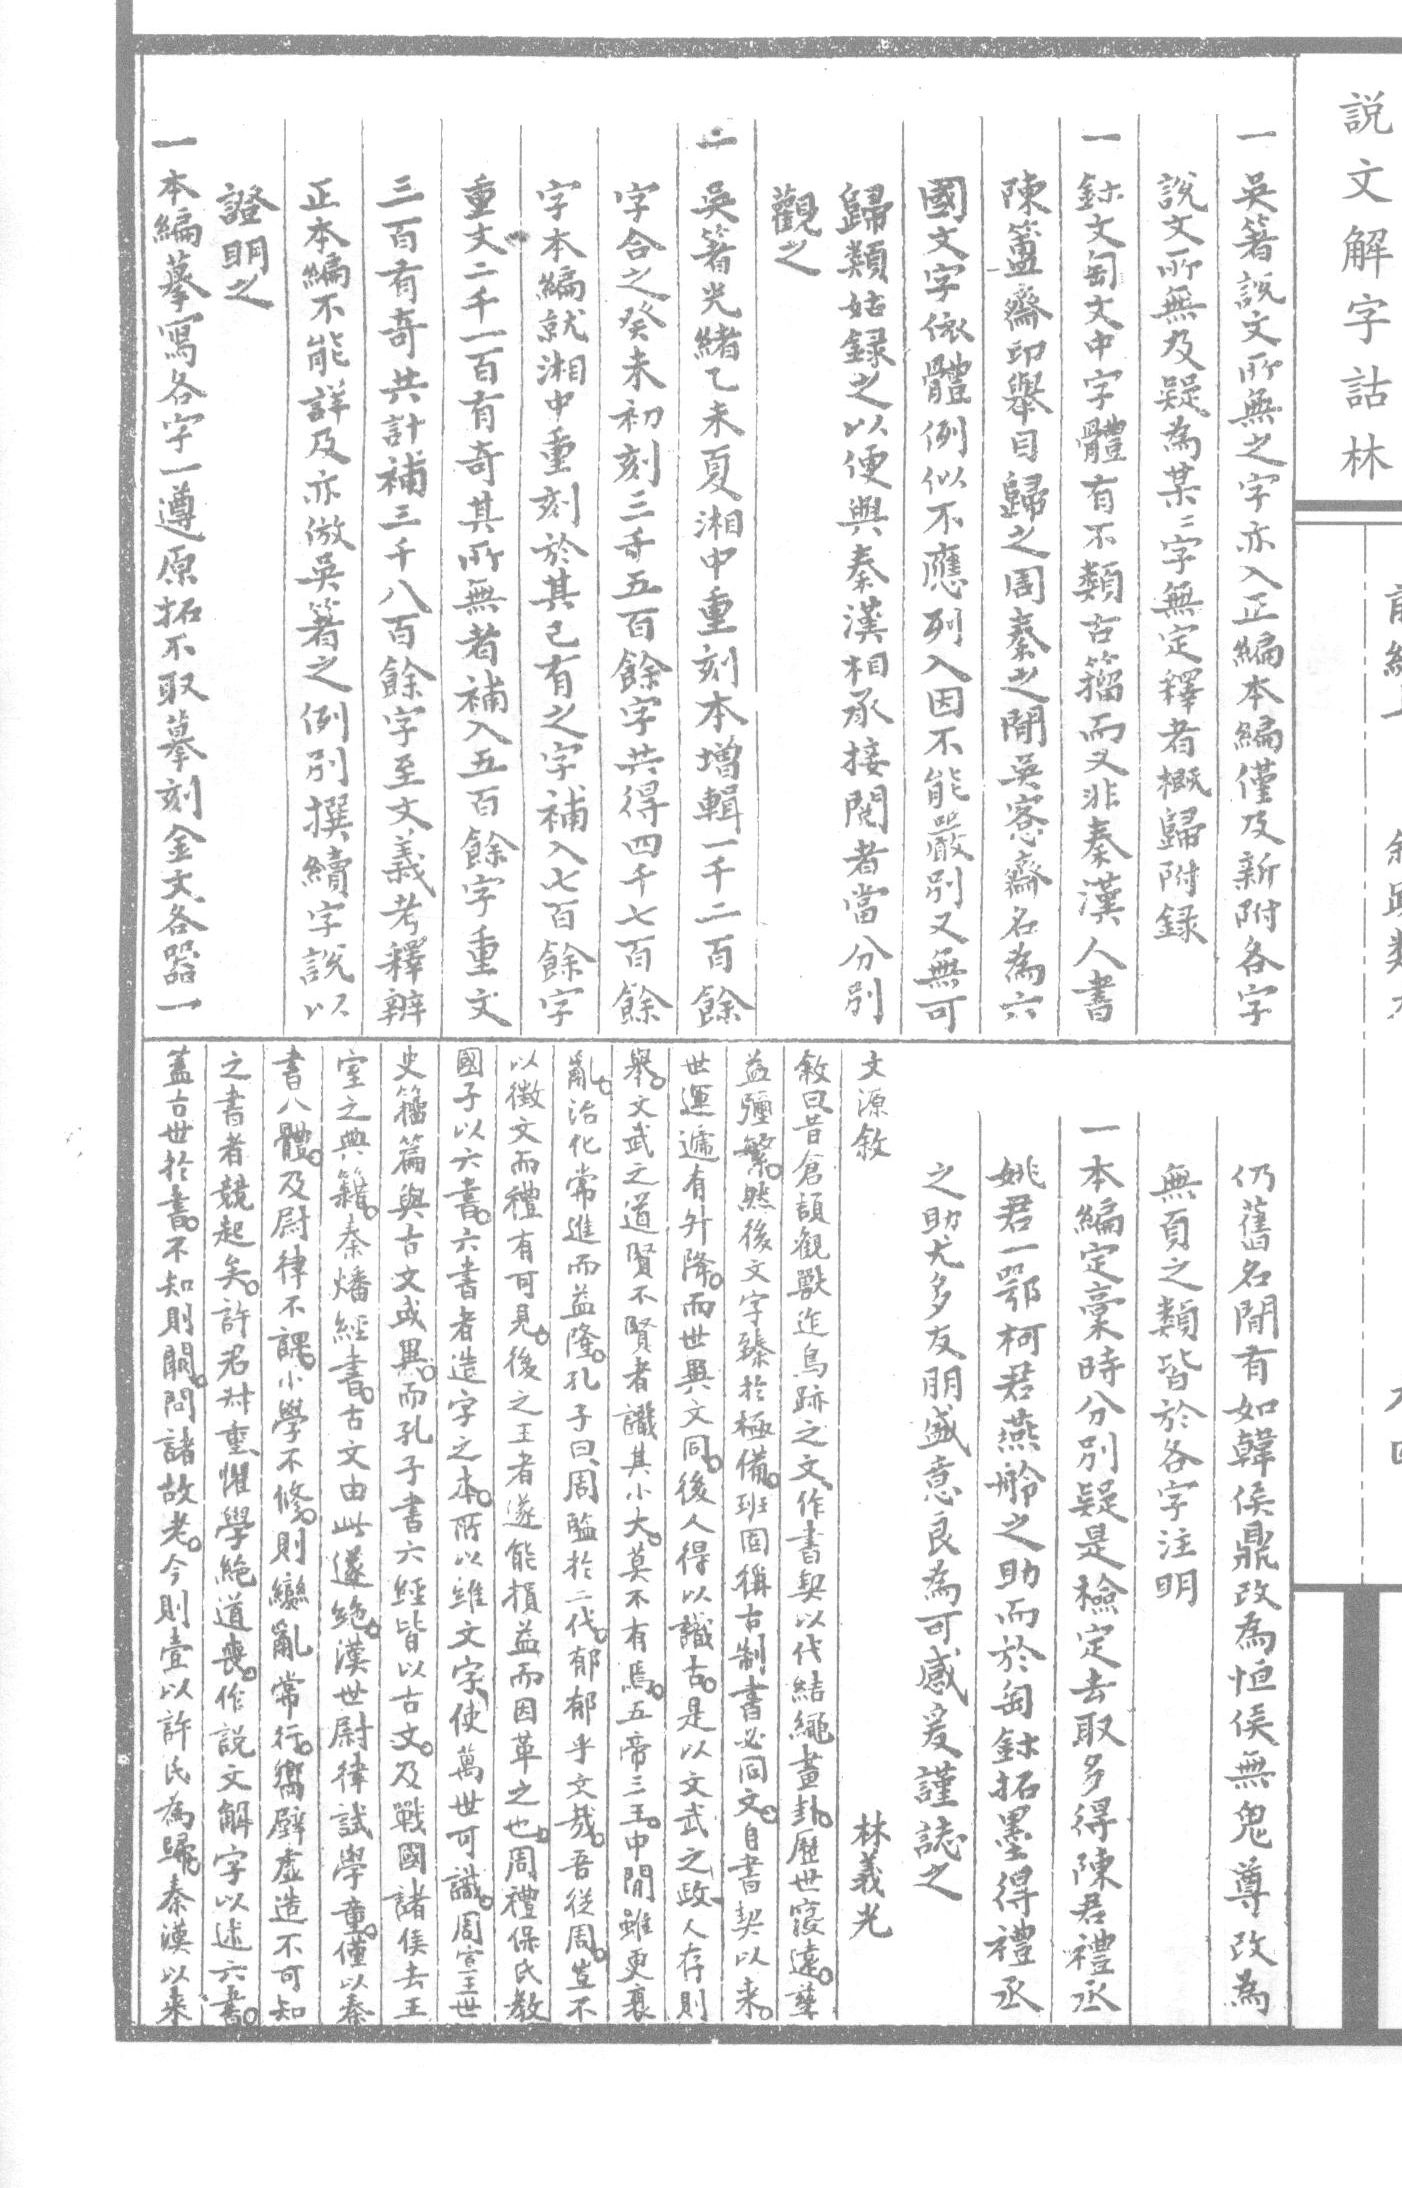 説文解字詁林
一吳箸說文所無之字亦入正編本編僅及新附各字
說文所無及疑為某字無定釋者概歸附錄
一鉨文匋文中字體有不類古籀而又非秦漢人書
陳簠齋印舉目歸之周秦之閒吳愙齋名為六
國文字依體例似不應列入因不能嚴別又無可
歸類姑錄之以便與秦漢相承接閱者當分別
觀之
一吳箸光緒乙未夏湘中重刻本增輯一千二百餘
字合之癸未初刻三千五百餘字共得四千七百餘
字本編就湘中重刻於其已有之字補入七百餘字
重文二千一百有奇其所無者補入五百餘字重文
三百有奇共計補三千八百餘字至文義考釋辨
正本編不能詳及亦倣吳箸之例別撰續字說以
證明之
一本編摹寫各字一遵原拓不取摹刻金文各器一
仍舊名閒有如韓侯鼎改為恒侯無鬼尊改為
無㝵之類皆於各字注明
一本編定稾時分別疑是檢定去取多得陳君禮丞
姚君一鄂柯君燕舲之助而於匋鉨拓墨得禮丞
之助尤多友朋盛意良為可感爰謹誌之
文源敘 林義光
敘曰昔倉頡觀獸迒鳥跡之文作書契以代結繩畫卦。歷世寖遠。孳
益彌繁。然後文字臻於極備。班固稱古制書必同文。自書契以來。
世運遞有升降。而世異文同。後人得以識古。是以文武之政人存則
舉。文武之道賢不賢者識其小大。莫不有焉。五帝三王。中閒雖更衰
亂。治化常進而益隆。孔子曰周監於二代。郁郁乎文哉。吾從周。豈不
以徵文而禮有可見。後之王者遂能損益而因革之也。周禮保氏教
國子以六書。六書者造字之本。所以維文字使萬世可識。周宣王世
史籀篇與古文或異。而孔子書六經皆以古文。及戰國諸侯去王
室之典籍。秦燔經書。古文由此遂絶。漢世尉律試學童。僅以秦
書八體。及尉律不課。小學不修。則變亂常行。嚮壁虛造不可知
之書者競起矣。許君叔重懼學絶道喪。作説文解字以述六書。
蓋古世於書。不知則闕。問諸故老。今則壹以許氏為歸。秦漢以來